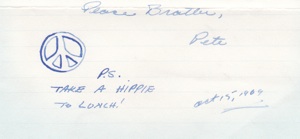 Peace Brother,
Pete
P.S.
TAKE A HIPPIE
TO LUNCH!
Oct 15, 1969